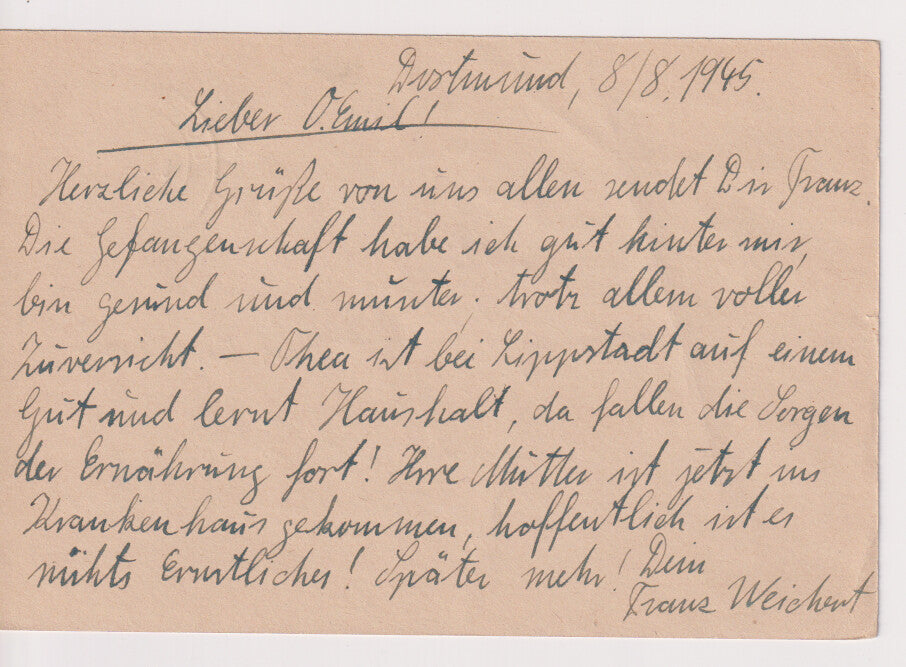 Dortmund, 8/8. 1945.
Lieber O. Emil!
Herzliche Grüße von uns allen sendet Dir Franz.
Die Gefangenschaft habe ich gut hinter mir,
bin gesund und munter, trotz allem voller
Zuversicht. – Thea ist bei Lippstadt auf einem
Gut und lernt Haushalt, da fallen die Sorgen
der Ernährung fort! Ihre Mutter ist jetzt ins
Krankenhaus gekommen, hoffentlich ist es
nichts Ernstliches! Später mehr! Dein
Franz Weichert